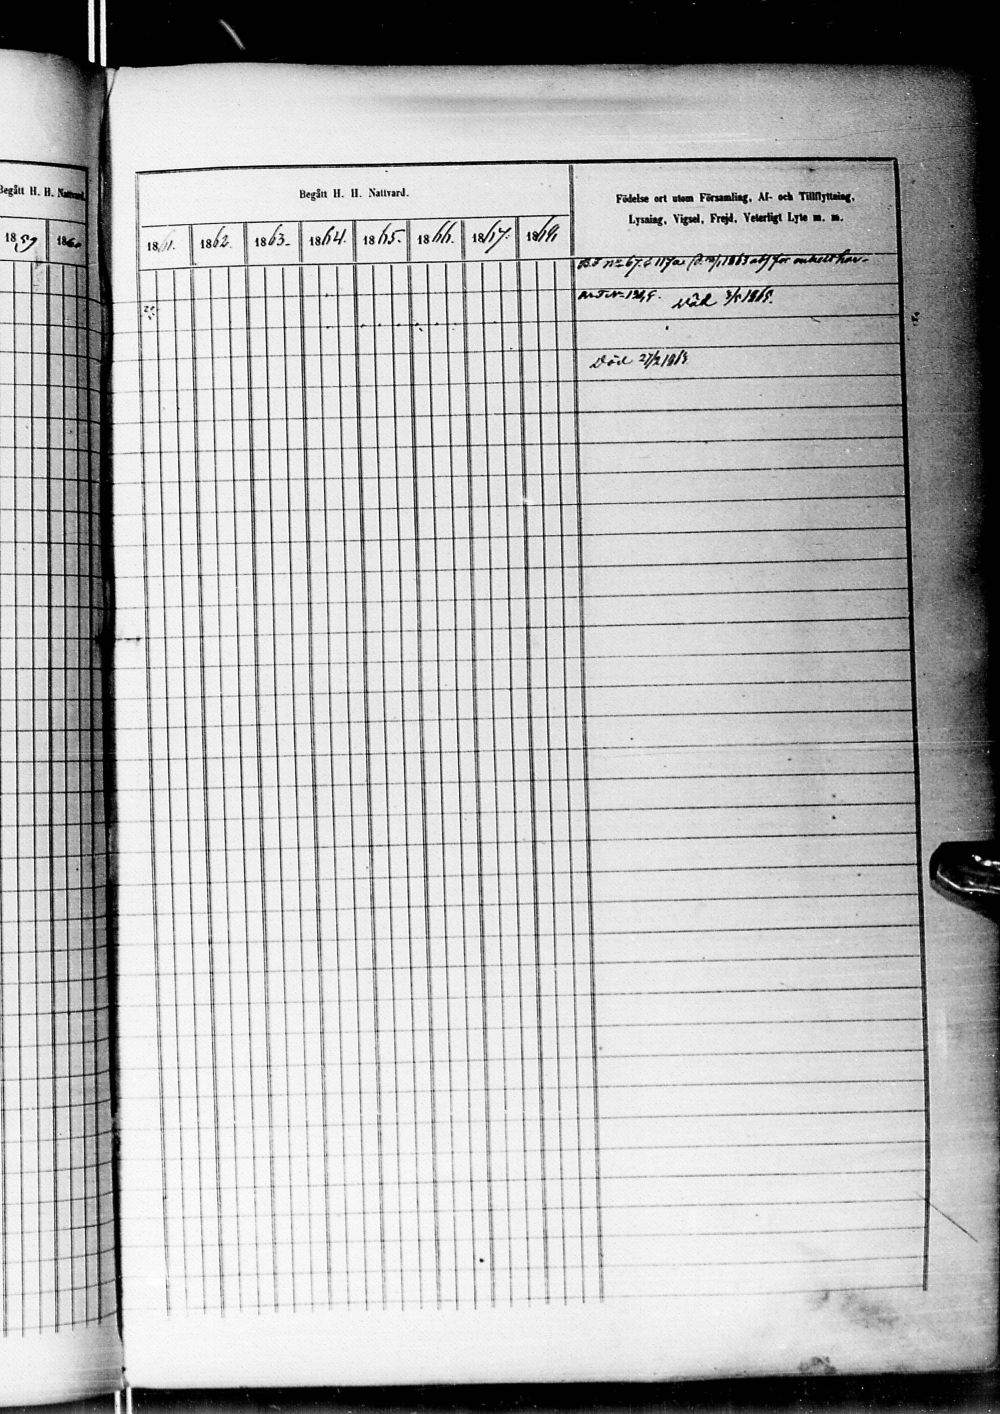 Begått H. H. Nattvard.
1859 1860
Begått H. H. Nattvard.
1861. 1862. 1863. 1864. 1865. 1866. 1867. 1869,
Födelse ort utom Församling, Af- och Tillflyttning,
Lysning, Vigsel, Frejd, Veterligt Lyte m. m.
1863 för enkelt hor
Död 3/5 1865.
Död 27/2 1863